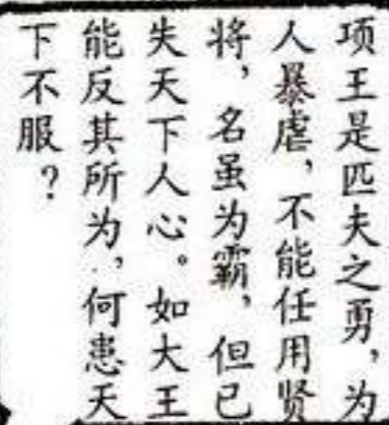 项王是匹夫之勇，为
人暴虐，不能任用贤
将，名虽为霸，但已
失天下人心。如大王
能反其所为，何患天
下不服？